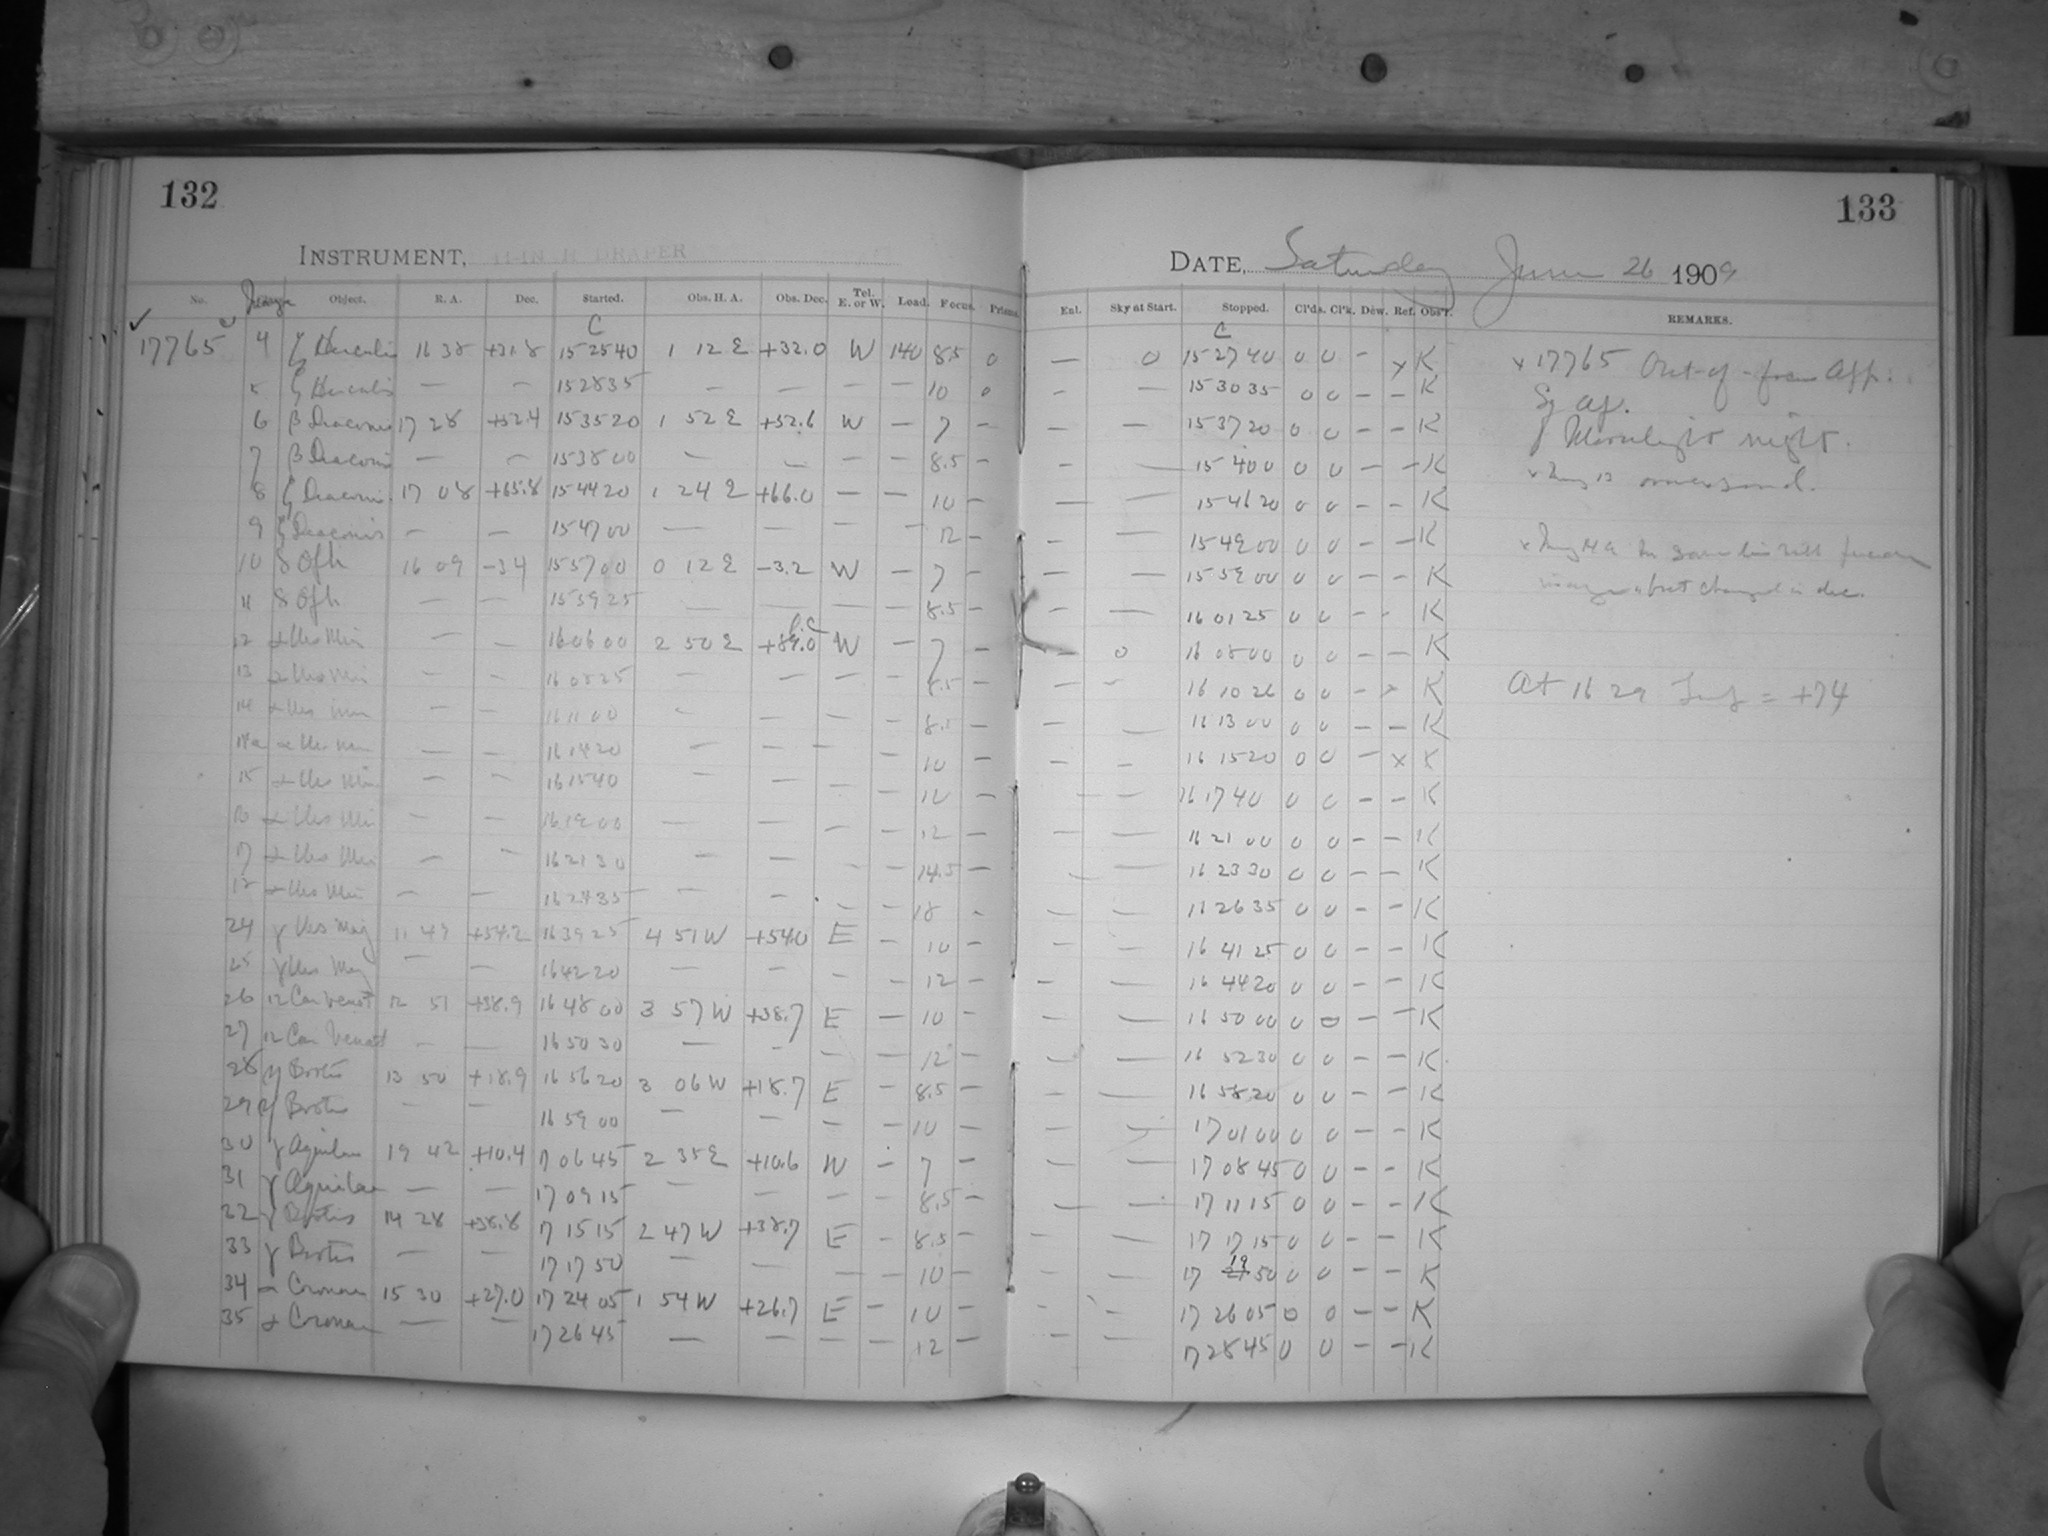 132
INSTRUMENT, 11-IN H DRAPER
No. Image Object. R. A. Dec. Started. Obs. H. A. Obs. Dec. Tel. E. or W. Load. Focus. Prisms.
C
17765 4 ζ Herculis 16 38 +31.8 15 25 40 1 12 E +32.0 W 140 8.5 0
5 ζ Herculis — — 15 28 35 — — — — 10 0
6 β Draconis 17 28 +52.4 15 35 20 1 52 E +52.6 W — 7 —
7 β Draconis — — 15 38 00 — — — 8.5 —
8 ζ Draconis 17 08 +65.8 15 44 20 1 24 E +66.0 — — 10 —
9 ζ Draconis — — 15 47 00 — — — — 12 —
10 δ Oph 16 09 -3.4 15 57 00 0 12 E -3.2 W — 7 —
11 δ Oph — — 15 39 25 — — — — 8.5 —
12 α Urs Min — — 16 06 00 2 50 E +89.0 W — 7 —
13 α Urs Min — — 16 08 25 — — — — 8.5 —
14 α Urs Min — — 16 11 00 — — — — 8.5 —
14a α Urs Min — — 16 14 20 — — — 10 —
15 α Urs Min — — 16 15 40 — — — — 10 —
16 α Urs Min — — 16 19 00 — — — — 12 —
17 α Urs Min — — 16 21 30 — — — — 14.5 —
18 α Urs Min — — 16 24 35 — — — — 18 —
24 γ Urs Maj 11 49 +54.2 16 39 25 4 51 W +54.0 E — 10 —
25 γ Urs Maj — — 16 42 20 — — — — 12 —
26 12 Can Venat 12 51 +38.9 16 48 00 3 57 W +38.7 E — 10 —
27 12 Can Venat — — 16 50 30 — — — — 12 —
28 η Bootis 13 50 +18.9 16 56 20 3 06 W +18.7 E — 8.5 —
29 η Bootis — — 16 59 00 — — — — 10 —
30 γ Aquilae 19 42 +10.4 17 06 45 2 35 E +10.6 W — 7 —
31 γ Aquilae — — 17 09 15 — — — — 8.5 —
22 γ Bootis 14 28 +38.8 17 15 15 2 47 W +38.7 E — 8.5 —
33 γ Bootis — — 17 17 50 — — — 10 —
34 α Coronae 15 30 +27.0 17 24 05 1 54 W +26.7 E — 10 —
35 α Coronae — — 17 26 45 — — — — 12 —
133
DATE, Saturday June 26 1909
Enl. Sky at Start. Stopped. Cl'ds. Cl'k. Dew. Ref. Obs'r. REMARKS.
C
— 0 15 27 40 0 0 — x K
— — 15 30 35 0 0 — — K
— — 15 37 20 0 0 — — K
— — 15 40 0 0 0 — — K
— — 15 46 20 0 0 — — K
— — 15 49 00 0 0 — — K
— — 15 59 00 0 0 — — K
— — 16 01 25 0 0 — — K
— 0 16 08 00 0 0 — — K
— — 16 10 26 0 0 — x K
— — 16 13 00 0 0 — — K
— — 16 15 20 0 0 — x K
— — 16 17 40 0 0 — — K
— — 16 21 00 0 0 — — K
— — 16 23 30 0 0 — — K
— — 16 26 35 0 0 — — K
— — 16 41 25 0 0 — — K
— — 16 44 20 0 0 — — K
— — 16 50 00 0 0 — — K
— — 16 52 30 0 0 — — K
— — 16 58 20 0 0 — — K
— — 17 01 00 0 0 — — K
— — 17 08 45 0 0 — — K
— — 17 11 15 0 0 — — K
— — 17 17 15 0 0 — — K
— — 17 19 50 0 0 — — K
— — 17 26 05 0 0 — — K
— — 17 28 45 0 0 — — K
x 17765 Out-of-focus App.
Moonlight night.
changed in dec.
At 16 29 = +74